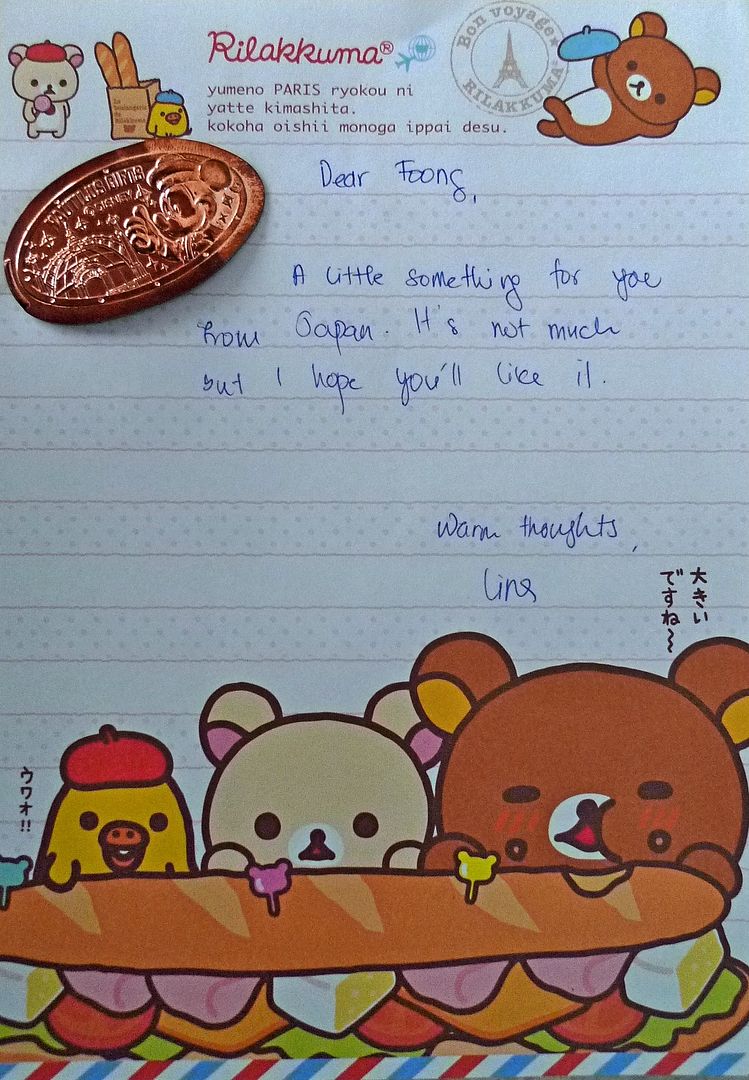 Rilakkuma®
yumeno PARIS ryokou ni
yatte kimashita.
kokoha oishii monoga ippai desu.
Bon voyage
RILAKKUMA
Dear Foong,
A little something for you
from Japan. It's not much
but I hope you'll like it.
warm thoughts,
大きい
ですね〜
ウワオ!!